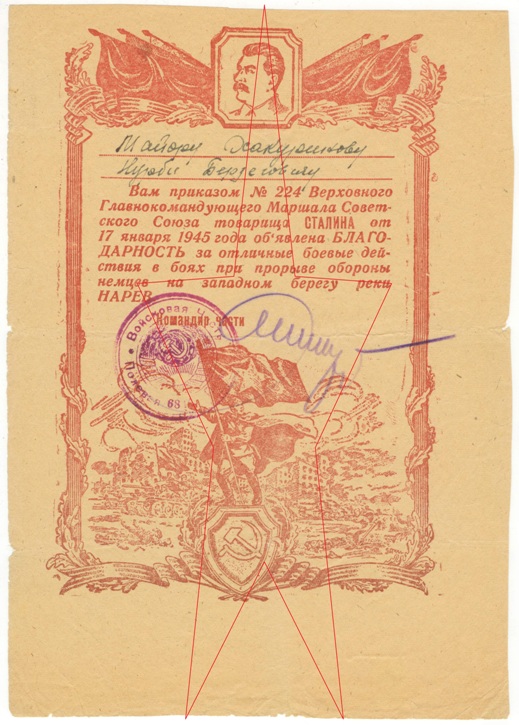 Майору Хакуринову
Нурбий
Вам приказом № 224 Верховного
Главнокомандующего Маршала Совет-
ского Союза товарища СТАЛИНА от
17 января 1945 года об'явлена БЛАГО-
ДАРНОСТЬ за отличные боевые дей-
ствия в боях при прорыве обороны
немцев на западном берегу реки
НАРЕВ.
Командир части
Войсковая
Полевая
68